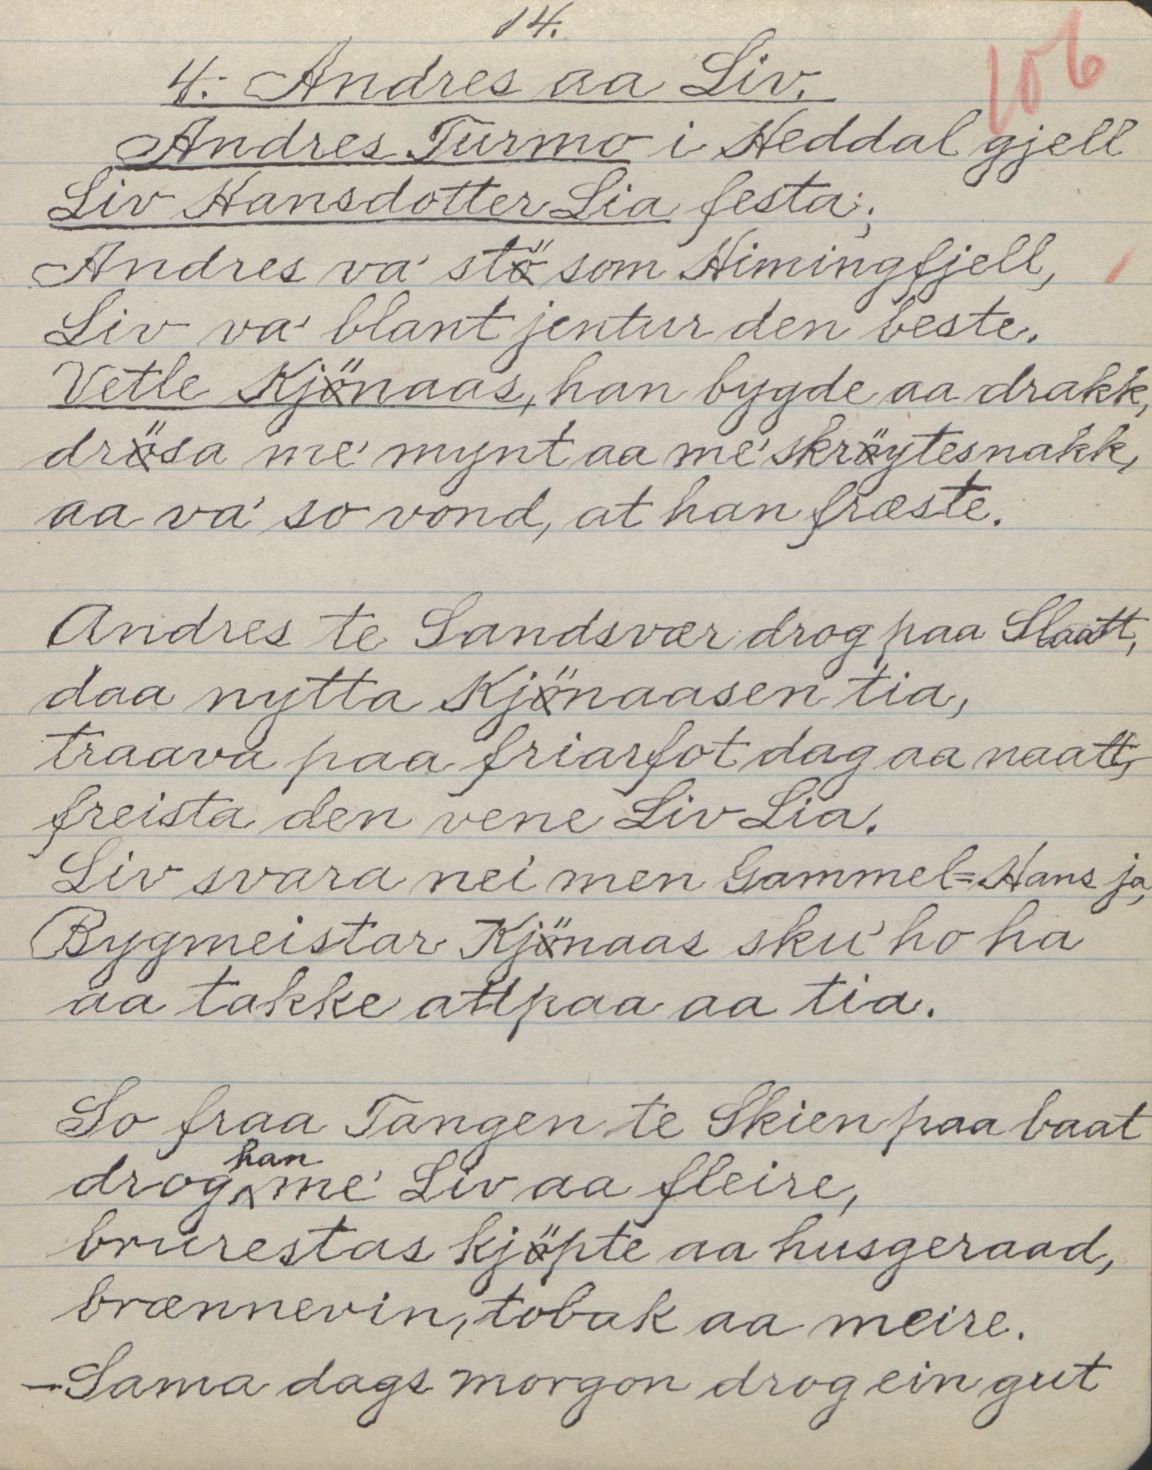 14.
106
4. Andres aa Liv.
Andres Turmo i Heddal gjell
Liv Hansdotter Lia festa;
Andres va' stö som Himingfjell,
Liv va' blant jentur den beste.
Vetle Kjönaas, han bygde aa drakk,
drösa me' mynt aa me' skröytesnakk,
aa va' so vond, at han fræste.
Andres te Sandsvær drog paa Slaatt,
daa nytta Kjönaasen tia,
traava paa friarfot dag aa naatt,
freista den vene Liv Lia.
Liv svara nei men Gammel-Hans ja,
Bygmeistar Kjönaas sku' ho ha
aa takke attpaa aa tia.
So fraa Tangen te Skien paa baat
drog han me' Liv aa fleire,
brurestas kjöpte aa husgeraad,
brænnevin, tobak aa meire.
– Sama dags morgon drog ein gut